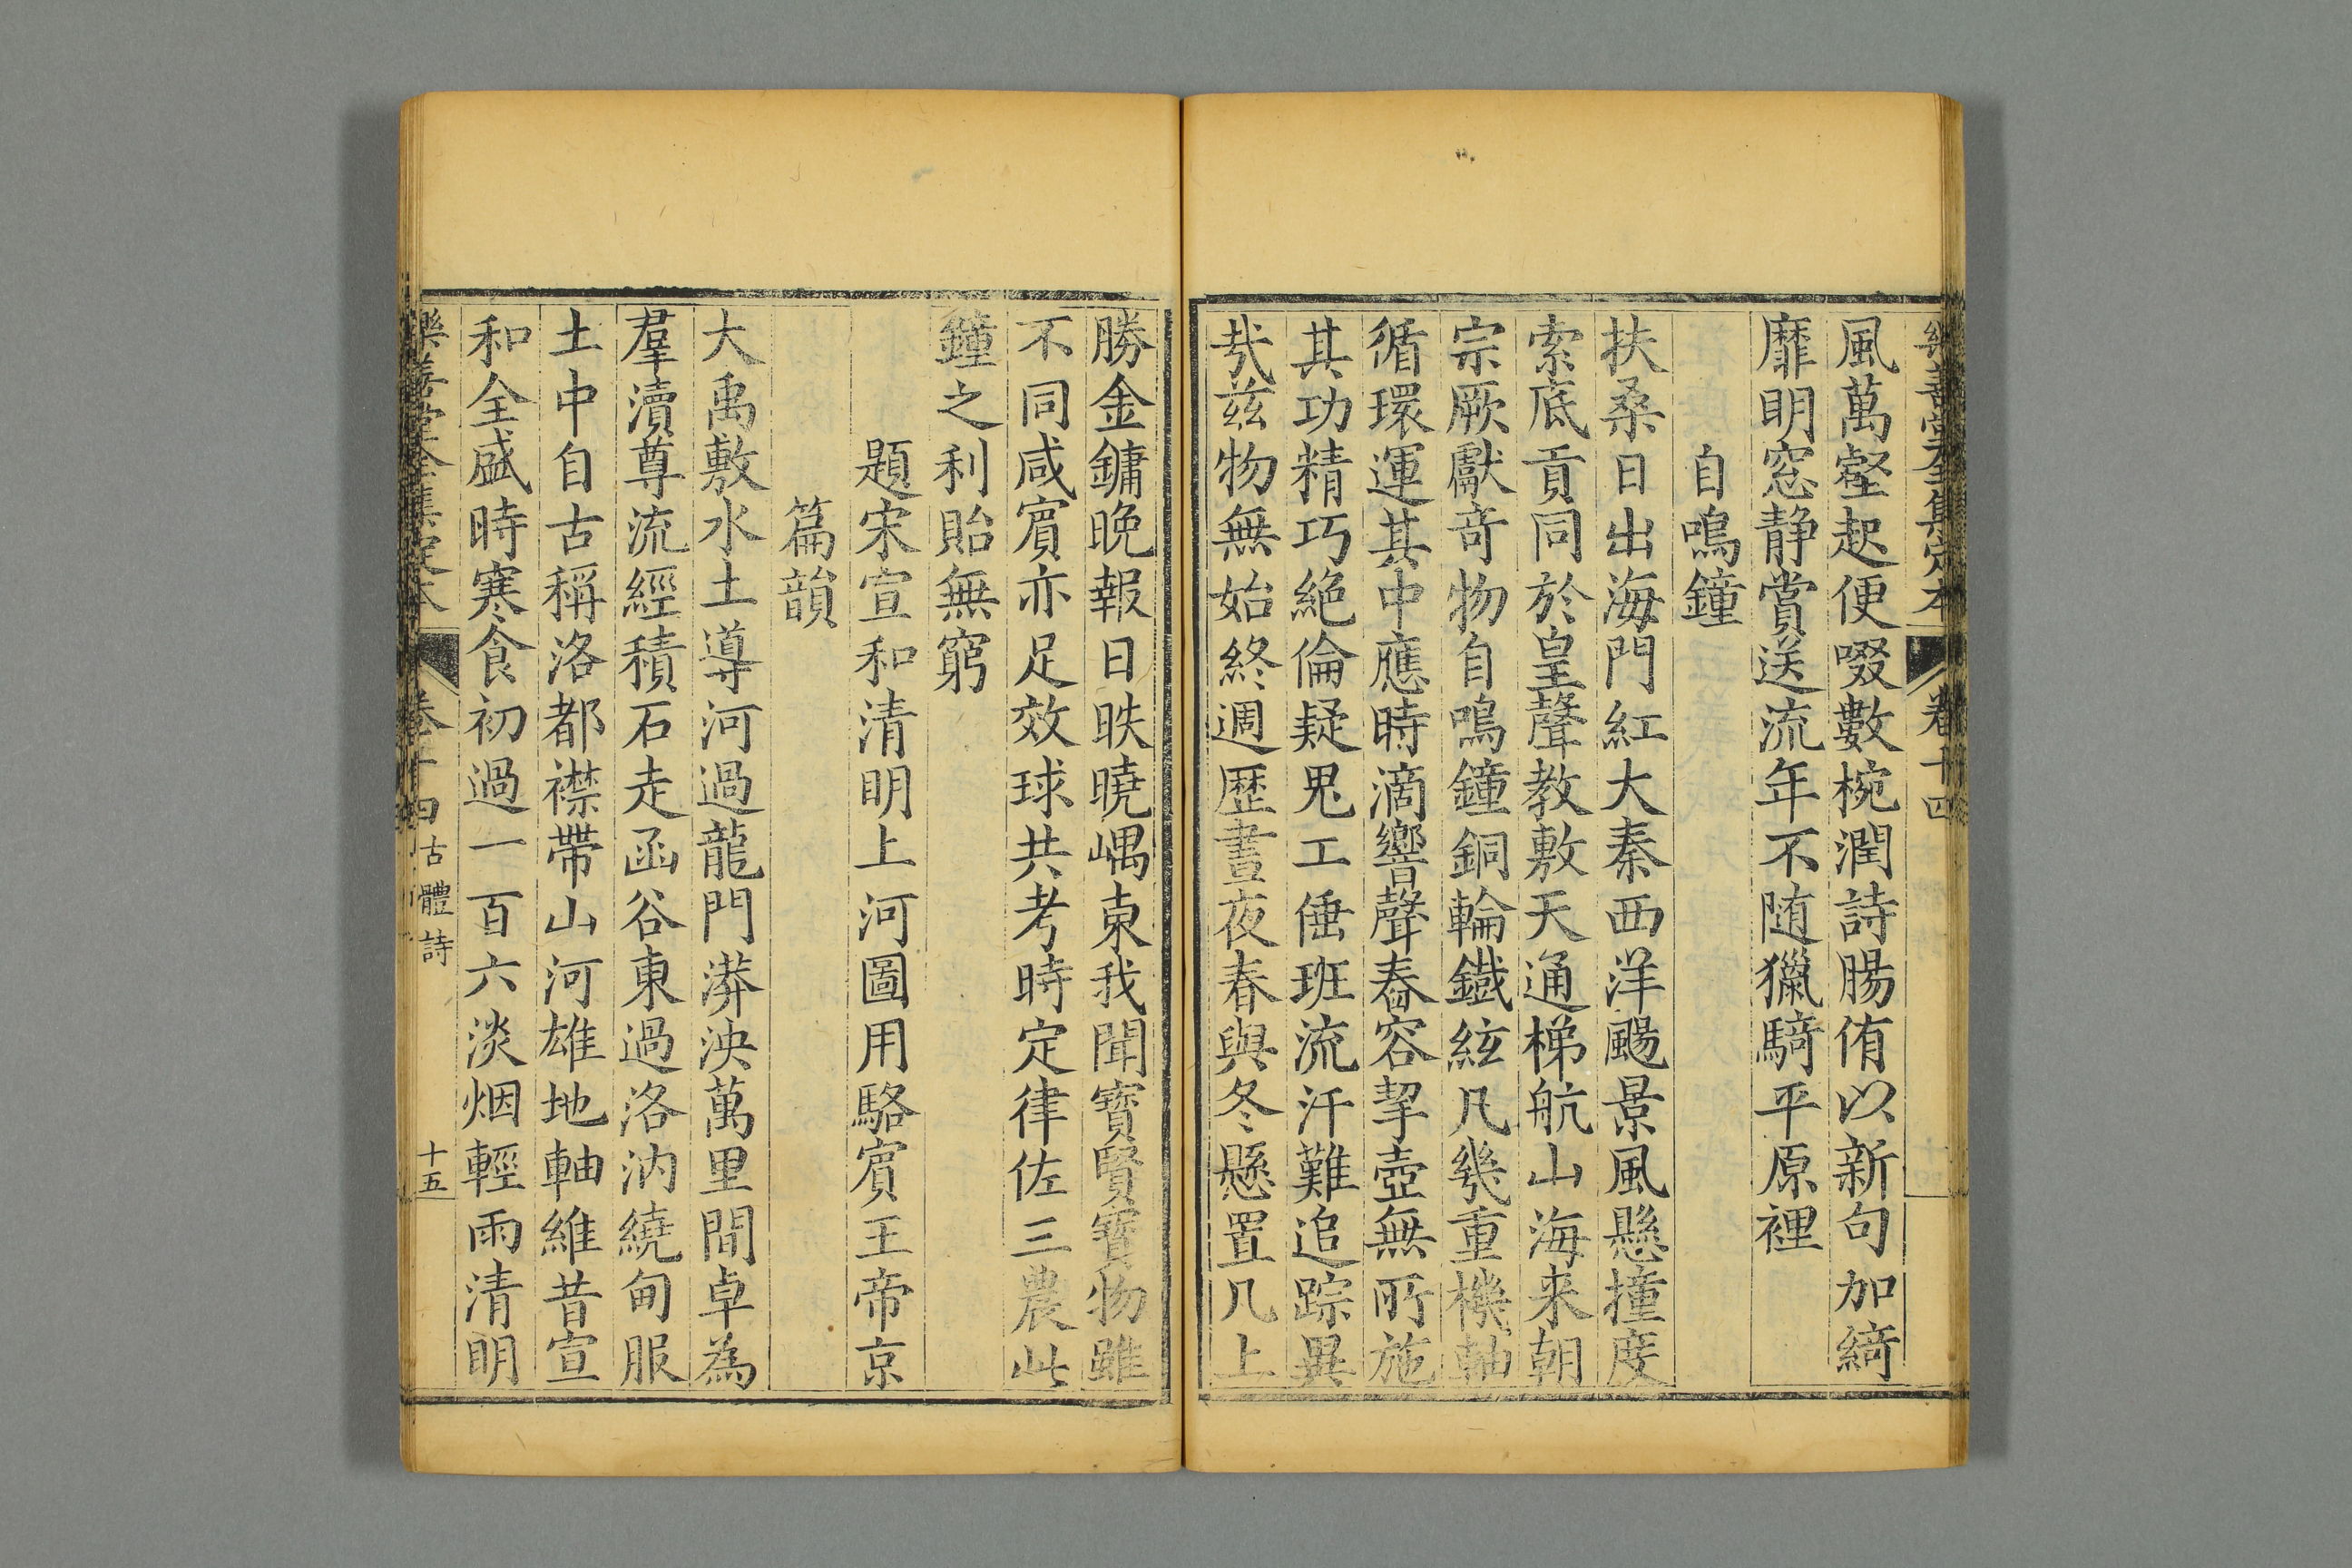 樂善堂全集定本 卷十四
風萬壑起便啜數椀潤詩腸侑以新句加綺
靡明窓静賞送流年不随獵騎平原裡
自鳴鐘
扶桑日出海門紅大秦西洋颺景風懸撞度
索底貢同於皇聲教敷天通梯航山海来朝
宗厥獻竒物自鳴鐘銅輪鐵絃凡幾重機軸
循環運其中應時滴響聲舂容挈壺無所施
其功精巧絶倫疑鬼工倕班流汗難追踪異
㦲兹物無始終週歴晝夜春與冬懸置几上
勝金鏞晚報日昳曉嵎東我聞寳賢寳物雖
不同咸賔亦足效球共考時定律佐三農此
鐘之利貽無窮
題宋宣和清明上河圖用駱賔王帝京
篇韻
大禹敷水土導河過龍門漭泱萬里間卓為
羣瀆尊流經積石走函谷東過洛汭繞甸服
土中自古稱洛都襟帶山河雄地軸維昔宣
和全盛時寒食初過一百六淡烟輕雨清明
樂善堂全集定本 卷十四 古體詩 十五